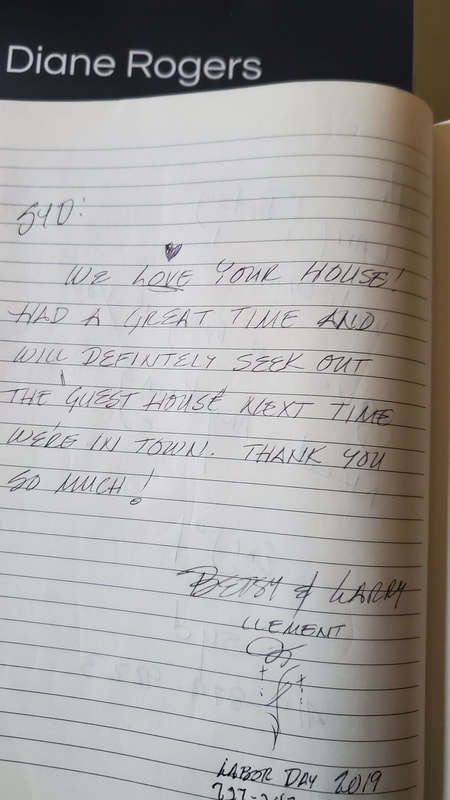 Diane Rogers
SYD:
WE LOVE YOUR HOUSE!
HAD A GREAT TIME AND
WILL DEFINTELY SEEK OUT
THE GUEST HOUSE NEXT TIME
WE'RE IN TOWN. THANK YOU
SO MUCH!
BETSY & LARRY
CLEMENT
LABOR DAY 2019